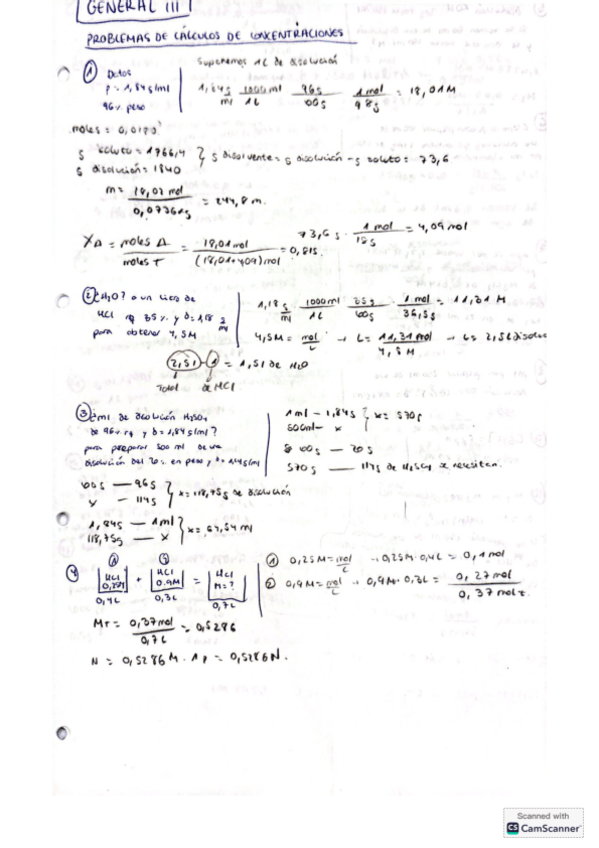 GENERAL III
PROBLEMAS DE CÁLCULOS DE CONCENTRACIONES
① Datos
ρ = 1,84 g/ml
96% peso
Suponemos 1L de disolución
1,84g/ml · 1000ml/1L · 96g/100g · 1mol/98g = 18,01M
moles = 0,0180
g soluto = 1766,4
g disolución = 1840
} g disolvente = g disolución - g soluto = 73,6
m = 18,02 mol / 0,0736 kg = 244,8 m.
73,6g · 1 mol/18g = 4,09 mol
XA = moles A / moles T = 18,01 mol / (18,01+4,09) mol = 0,815
② ¿H2O? a un litro de
HCl 35% y d=1,18 g/ml
para obtener 4,5M
1,18g/ml · 1000ml/1L · 35g/100g · 1mol/36,5g = 11,31 M
4,5M = mol/L → L = 11,31mol / 4,5M → L = 2,5L
2,51 - 1 = 1,51 de H2O
Total de HCl
③ ¿ml de disolución H2SO4
de 96% y d=1,84g/ml?
para preparar 500 ml de una
disolución del 20% en peso y d=1,14g/ml
500ml — x } x = 570g
100g — 20g
570g — 114g de H2SO4 se necesitan.
100g — 96g
x — 114g } x = 118,75g de disolución
1,84g — 1ml
118,75g — x } x = 64,54 ml
④ HCl + HCl 0,9M = HCl M=?
0,4L 0,3L 0,7L
① 0,25M = mol/L → 0,25M · 0,4L = 0,1mol
② 0,9M = mol/L → 0,9M · 0,3L = 0,27mol
0,37 mol t.
MT = 0,37mol / 0,7L = 0,5286
N = 0,5286 M · 1 = 0,5286N.
Scanned with
CS CamScanner